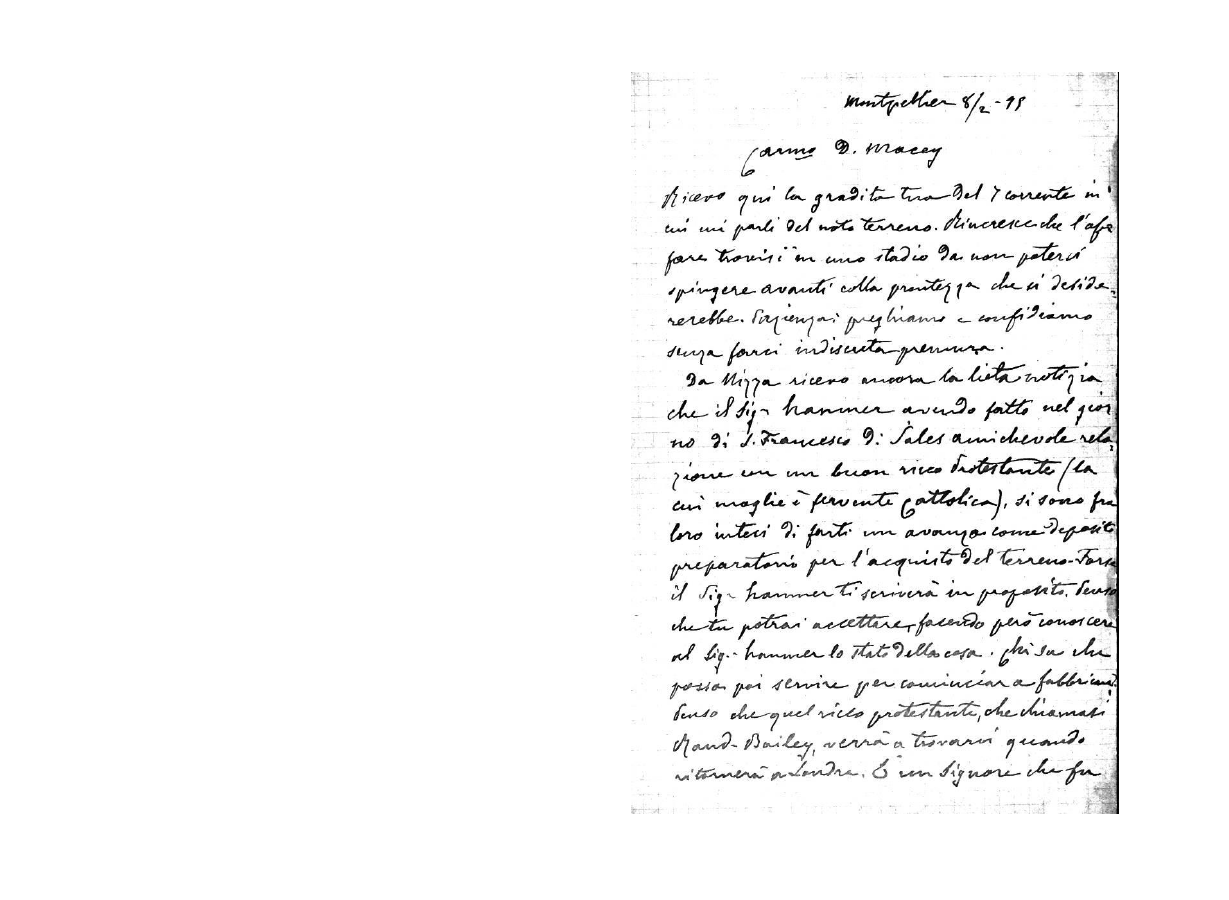 Montpellier 8/2-95
Carmo D. Macey
Ricevo qui la gradita tua del 7 corrente in
cui mi parli del noto terreno. Rincresce che l'af=
fare trovisi in uno stadio da non potersi
spingere avanti colla prontezza che si deside=
rerebbe. Pazienza; preghiamo e confidiamo
senza farci indiscreta premura.
Da Nizza ricevo ancora la lieta notizia
che il Sigr hammer avendo fatto nel gior
no di S. Francesco di Sales amichevole rela=
zione con un buon ricco Protestante (la
cui moglie è fervente Cattolica), si sono fra
loro intesi di farti un avanzo come deposito
preparatorio per l'acquisto del terreno - Forse
il Sigr hammer ti scriverà in proposito. Penso
che tu potrai accettare, facendo però conoscere
al Sigr hammer lo stato della cosa. Chi sa che
possa poi servire per cominciar a fabbricare.
Penso che quel ricco protestante, che chiamasi
Rand-Bailey, verrà a trovarvi quando
ritornerà a Londra. È un Signore che fu